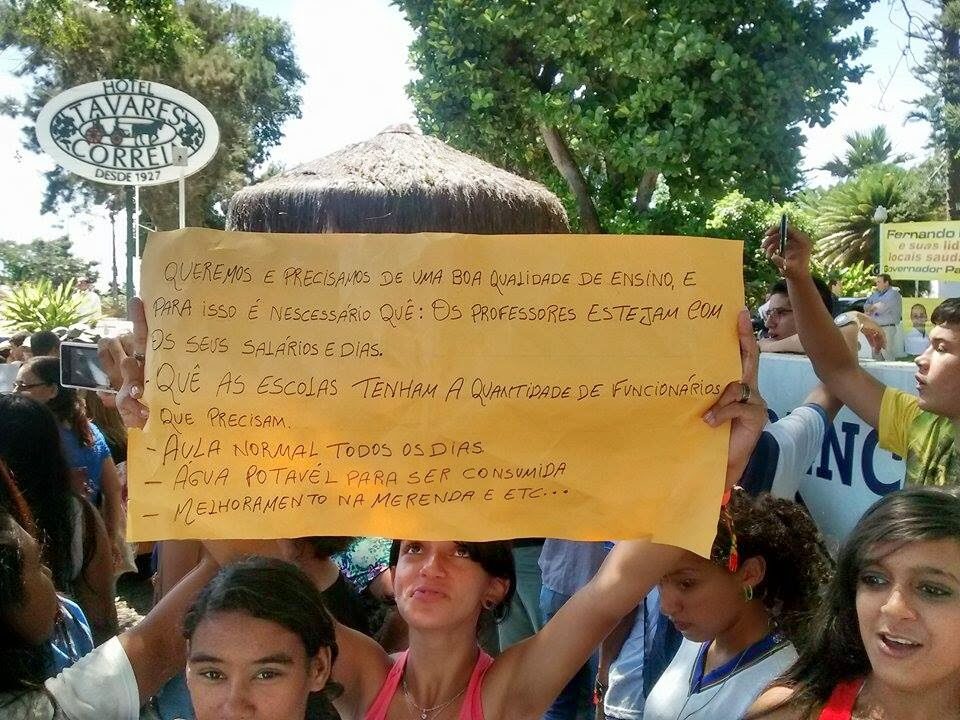 HOTEL
TAVARES
CORREIA
DESDE 1927
QUEREMOS E PRECISAMOS DE UMA BOA QUALIDADE DE ENSINO, E
PARA ISSO É NESCESSÁRIO QUÊ: OS PROFESSORES ESTEJAM COM
OS SEUS SALÁRIOS E DIAS.
- QUÊ AS ESCOLAS TENHAM A QUANTIDADE DE FUNCIONÁRIOS
QUE PRECISAM.
- AULA NORMAL TODOS OS DIAS.
- ÁGUA POTAVÉL PARA SER CONSUMIDA
- MELHORAMENTO NA MERENDA E ETC...
Fernando
e suas lid
locais saúda
Governador Pa
INC